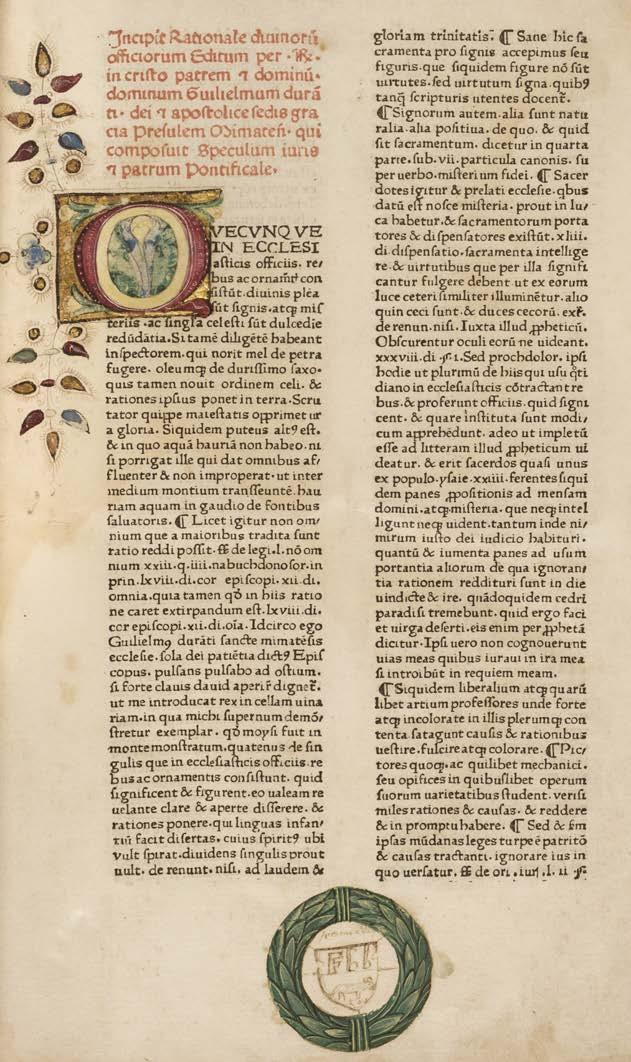 Incipit Rationale diuinorū
officiorum Editum per · R̄ ·
in cristo patrem ⁊ dominū·
dominum Guilielmum durā
ti· dei ⁊ apostolice sedis gra
cia Presulem Mimateñ· qui
composuit Speculum iuris
⁊ patrum Pontificale·
QVECVNQVE
IN ECCLESI
asticis officiis. re/
bus ac ornamētis con
sistūt. diuinis plēa
sūt signis. atqꝫ mis
teriis · ac singla celesti sūt dulcedīe
redūdātia. Si tamē diligētē habeant
inspectorem. qui norit mel de petra
fugere. oleumqꝫ de durissimo saxo.
quis tamen nouit ordinem celi. &
rationes ipsius ponet in terra. Scru
tator quippe maiestatis opprimetur
a gloria. Siquidem puteus altꝰ est.
& in quo aquā hauriā non habeo. ni
si porrigat ille qui dat omnibus af/
fluenter & non improperat. ut inter
medium montium transseuntē. hau
riam aquam in gaudio de fontibus
saluatoris. ¶ Licet igitur non om/
nium que a maioribus tradita sunt
ratio reddi possit. ff. de legi. l. nō om
nium xxiii. q. iiii. nabuchdonosor. in
prin. lxviii. di. cor episcopi. xii. di.
omnia. quia tamen qđ in hiis ratio
ne caret extirpandum est. lxviii. di.
cor episcopi. xii. di. oīa. Idcirco ego
Guilielmꝰ durāti sancte mimatēsis
ecclesie. sola dei patiētia dictꝰ Epis
copus. pulsans pulsabo ad ostium.
si forte clauis dauid aperire digneť.
ut me introducat rex in cellam uina
riam. in qua michi supernum demō/
stretur exemplar. qđ moysi fuit in
monte monstratum. quatenus de sin
gulis que in ecclesiasticis officiis. re
bus ac ornamentis consistunt. quid
significent & figurent. eo ualeam re
uelante clare & aperte disserere. &
rationes ponere. qui linguas infan/
tiū facit disertas. cuius spiritꝰ ubi
vult spirat. diuidens singulis prout
uult. de renunt. nisi. ad laudem &
gloriam trinitatis. ¶ Sane hic sa
cramenta pro signis accepimus seu
figuris. que siquidem figure nō sūt
uirtutes. sed uirtutum signa. quibꝰ
tanq̄ scripturis utentes docenť.
¶ Signorum autem. alia sunt natu
ralia. alia positiua. de quo. & quid
sit sacramentum. dicetur in quarta
parte. sub. vii. particula canonis. su
per uerbo. misterium fidei. ¶ Sacer
dotes igitur & prelati ecclesie. qbus
datū est nosce misteria. prout in lu/
ca habetur. & sacramentorum porta
tores & dispensatores existūt. xliii.
di. dispensatio. sacramenta intellige
re. & uirtutibus que per illa signifi
cantur fulgere debent. ut ex eorum
luce ceteri similiter illuminētur. alio
quin ceci sunt. & duces cecorū. extr̄.
de renun. nisi. Iuxta illud ꝓpheticū.
Obscurentur oculi eorū ne uideant.
xxxviii. di. §. 1. Sed prochdolor. ipsi
hodie ut plurimū de hiis qui usu q̄ti
diano in ecclesiasticis cōtractant re
bus. & proferunt officiis. quid signi
cent. & quare instituta sunt modi/
cum apprehēdunt. adeo ut impletū
esse ad litteram illud ꝓpheticum ui
deatur. & erit sacerdos quasi unus
ex populo. ysaie. xxiiii. ferentes siqui
dem panes ꝓpositionis ad mensam
domini. atqꝫ misteria. que neqꝫ intel
ligunt neqꝫ uident. tantum inde ni/
mirum iusto dei iudicio habituri.
quantū & iumenta panes ad usum
portantia aliorum. de qua ignoran/
tia rationem reddituri sunt in die
uindicte & ire. quādoquidem cedri
paradisi tremebunt. quid ergo faci
et uirga deserti. eis enim per ꝓphetā
dicitur. Ipsi uero non cognouerunt
uias meas quibus iuraui in ira mea
si introibūt in requiem meam.
¶ Siquidem liberalium atqꝫ quarū
libet artium professores unde forte
atqꝫ incolorate in illis plerumqꝫ con
tenta satagunt causis & rationibus
uestire. fulcire atqꝫ colorare. ¶ Pic/
tores quoqꝫ. ac quilibet mechanici.
seu opifices in quibuslibet operum
suorum uarietatibus student. verisi
miles rationes & causas. & reddere
& in promptu habere. ¶ Sed & s̄m
ipsas mūdanas leges turpe ē patritō
& causas tractanti. ignorare ius in
quo uersatur. ff. de ori. iur̄. l. ii §.